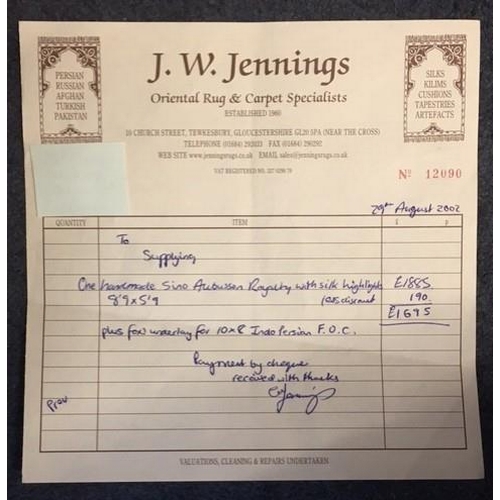 J. W. Jennings
Oriental Rug & Carpet Specialists
ESTABLISHED 1960
PERSIAN
RUSSIAN
AFGHAN
TURKISH
PAKISTAN
SILKS
KILIMS
CUSHIONS
TAPESTRIES
ARTEFACTS
10 CHURCH STREET, TEWKESBURY, GLOUCESTERSHIRE GL20 5PA (NEAR THE CROSS)
TELEPHONE (01684) 292033 FAX (01684) 290292
WEB SITE www.jenningsrugs.co.uk EMAIL sales@jenningsrugs.co.uk
VAT REGISTERED NO.
Nº 12090
29th August 2002
QUANTITY ITEM £ p
To
Supplying
One handmade Sino Aubusson Royalty with silk highlights £1885
8'9 x 5'9 10% discount 190
£1695
plus underlay for 10x8 Indo Persian F.O.C.
Payment by cheque
received with thanks
VALUATIONS, CLEANING & REPAIRS UNDERTAKEN